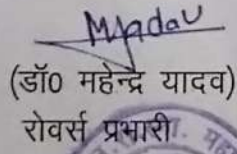 Myadav
(डॉ0 महेन्द्र यादव)
रोवर्स प्रभारी